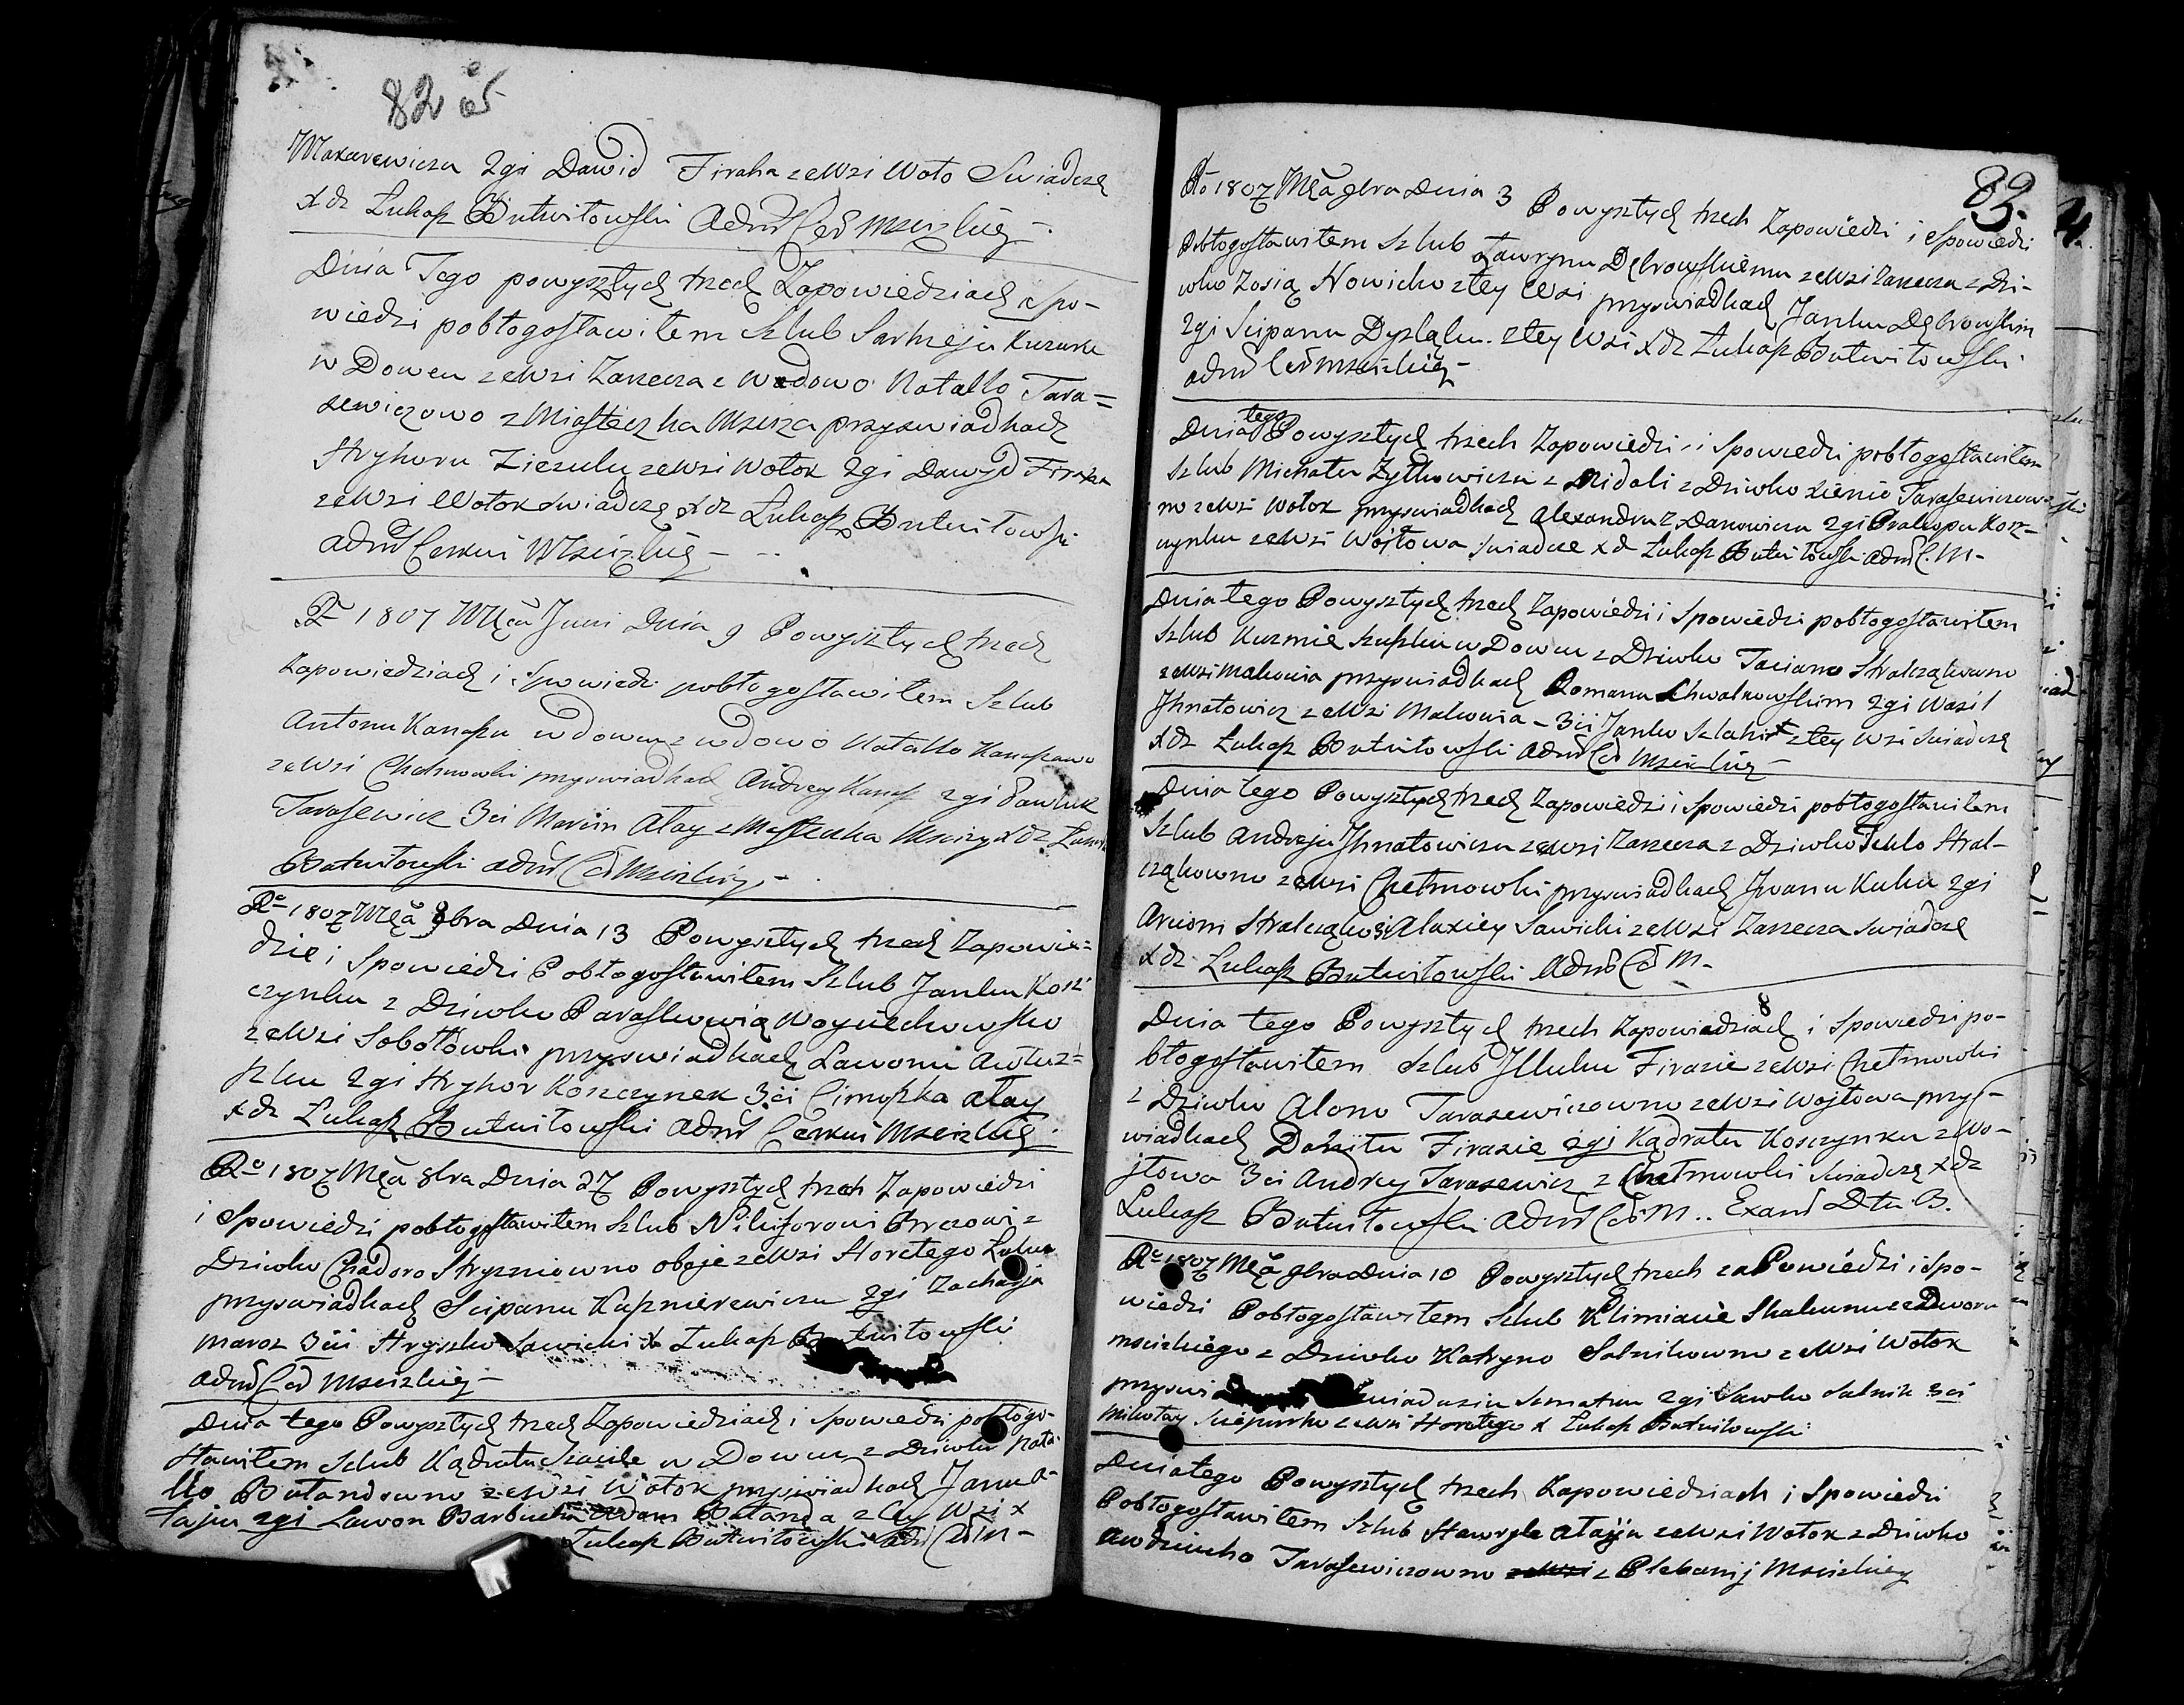 82 об
Makarewicza 2gi Dawid Firaha ze Wsi Woło Swiadczę
X dz Łukasz Butwiłowski Admr Cer Mscizkiey
Dnia Tego powysztych trzech Zapowiedziach i Spo-
wiedzi pobłogosławiłem Szlub Sarheju
w Dowcu ze Wsi Zarzecza z Wdowo Natallo Tara=
sewiczowo z Miasteczka Mscisza przyswiadkach
Hryhoru Ziezulu ze Wsi Wołok 2gi Dawyd
ze Wsi Wołok swiadczę X dz Łukasz Butwiłowski
Admr Cerkwi Mscizkiey
Ro 1807 Męca Juni Dnia 9 Powysztych trzech
Zapowiedziach i Spowiedzi pobłogosławiłem Szlub
Antonu Kanaszu wdowcu z wdowo Natallo Kanaszawo
ze Wsi Chełmowki przyswiadkach Andrey Kanasz 2gi Pawluk
Tarasewicz 3ci Marcin Ałay z Masteczka Msciży X dz
Butwiłowski Admr Cer Mscizkiey
Ro 1807 Męca 8bra Dnia 13 Powysztych trzech Zapowie=
dzie i Spowiedzi Pobłogosławiłem Szlub Janku Kosz-
czynku z Dziwko Paraskewią Woyciechowsko
ze Wsi Sobotowki przyswiadkach Lawonu
szku 2gi Hryhor Koszczynek 3ci Cimoszka Ałay
X dz Łukasz Butwiłowski Admr Cerkwi Mscizkiey
Ro 1807 Męca 8bra Dnia 27 Powysztych trzech Zapowiedzi
i Spowiedzi pobłogosławiłem Szlub Nikiforowi z
Dziwko Chadoro Hryszniowno oboje ze Wsi Horełego
przyswiadkach Scipanu Kaźmierewiczu 2gi Zacharja
Maroz 3ci Hryszko Sawicki X Łukasz Butwiłowski
Admr Cer Mscizkiey
Dnia tego Powysztych trzech Zapowiedziach i Spowiedzi pobłogo-
sławiłem Szlub Kądratu w Dowcu z Dziwko Nata-
llo Bułandowno ze Wsi Wołok przyswiadkach Janu A-
łaju 2gi Lawon Adam Bułanda z tey Wsi X
Łukasz Butwiłowski Adr Cer M
83.
Ro 1807 Męca 9bra Dnia 3 Powysztych trzech Zapowiedzi i Spowiedzi
Pobłogosławiłem Szlub Ławrynu Dębrowskiemu ze Wsi Zarzecza z Dzi-
wko Zosią Nowicko z tey Wsi przyswiadkach Janku Dąbrowskim
2gi Scipanu z tey Wsi X dz Łukasz Butwiłowski
Admr Cer Mscizkiey
Dnia tego Powysztych trzech Zapowiedzi i Spowiedzi pobłogosławiłem
Szlub Michału Zytkowiczu z Midali z Dziwko Xienio Tarasewiczow-
no ze Wsi Wołok przyswiadkach Alexandru Zdanowiczu 2gi Prakopu Kosz-
czynku ze Wsi Wojtowa swiadcze X dz Łukasz Butwiłowski Admr C. M
Dnia tego Powysztych trzech Zapowiedzi i Spowiedzi pobłogosławiłem
Szlub Kuzmie Szuszku w Dowcu z Dziwko Tacianno Stralcząkowno
ze Wsi Makowia przyswiadkach Romanu Chwalkowskim 2gi Wasil
Ihnatowicz ze Wsi Makowia 3ci Janko z tey Wsi swiadczę
X dz Łukasz Butwiłowski Admr Cer Mscizkiey
Dnia tego Powysztych trzech Zapowiedzi i Spowiedzi pobłogosławiłem
Szlub Andrzeju Ihnatowiczu ze Wsi Zarzecza z Dziwko Teklo Stral-
cząkowno ze Wsi Chełmowki przyswiadkach Iwanu Kuku 2gi
Arciom Stralczak 3ci Alaxiey Sawicki ze Wsi Zarzecza swiadczę
X dz Łukasz Butwiłowski Admr Cer M
Dnia tego Powysztych trzech Zapowiedziach i Spowiedzi po-
błogosławiłem Szlub Illuku Firazie ze Wsi Chełmowki
z Dziwko Alono Tarasewiczowno ze Wsi Wojtowa przys-
wiadkach Danitu Firazie 2gi Kądratu Koszczynku z Wo-
jtowa 3ci Andrey Tarasewicz z Chełmowki swiadczę X dz
Łukasz Butwiłowski Admr Cer M.. Exand Dtn B.
Ro 1807 Męca 9bra Dnia 10 Powysztych trzech zaPowiedzi i Spo-
wiedzi Pobłogosławiłem Szlub Klimianie Skakunu ze Dworu
Mscizkiego z Dziwko Katryno Salnikowno ze Wsi Wołok
przyswi 2gi Sawko Salnik 3ci
Mikołay ze Wsi Horełego X Łukasz Butwiłowski
Dnia tego Powysztych trzech Zapowiedziach i Spowiedzi
Pobłogosławiłem Szlub Hawryle Ałaju ze Wsi Wołok z Dziwko
Awdziucho Tarasewiczowno z Plebanij Mscizkiey